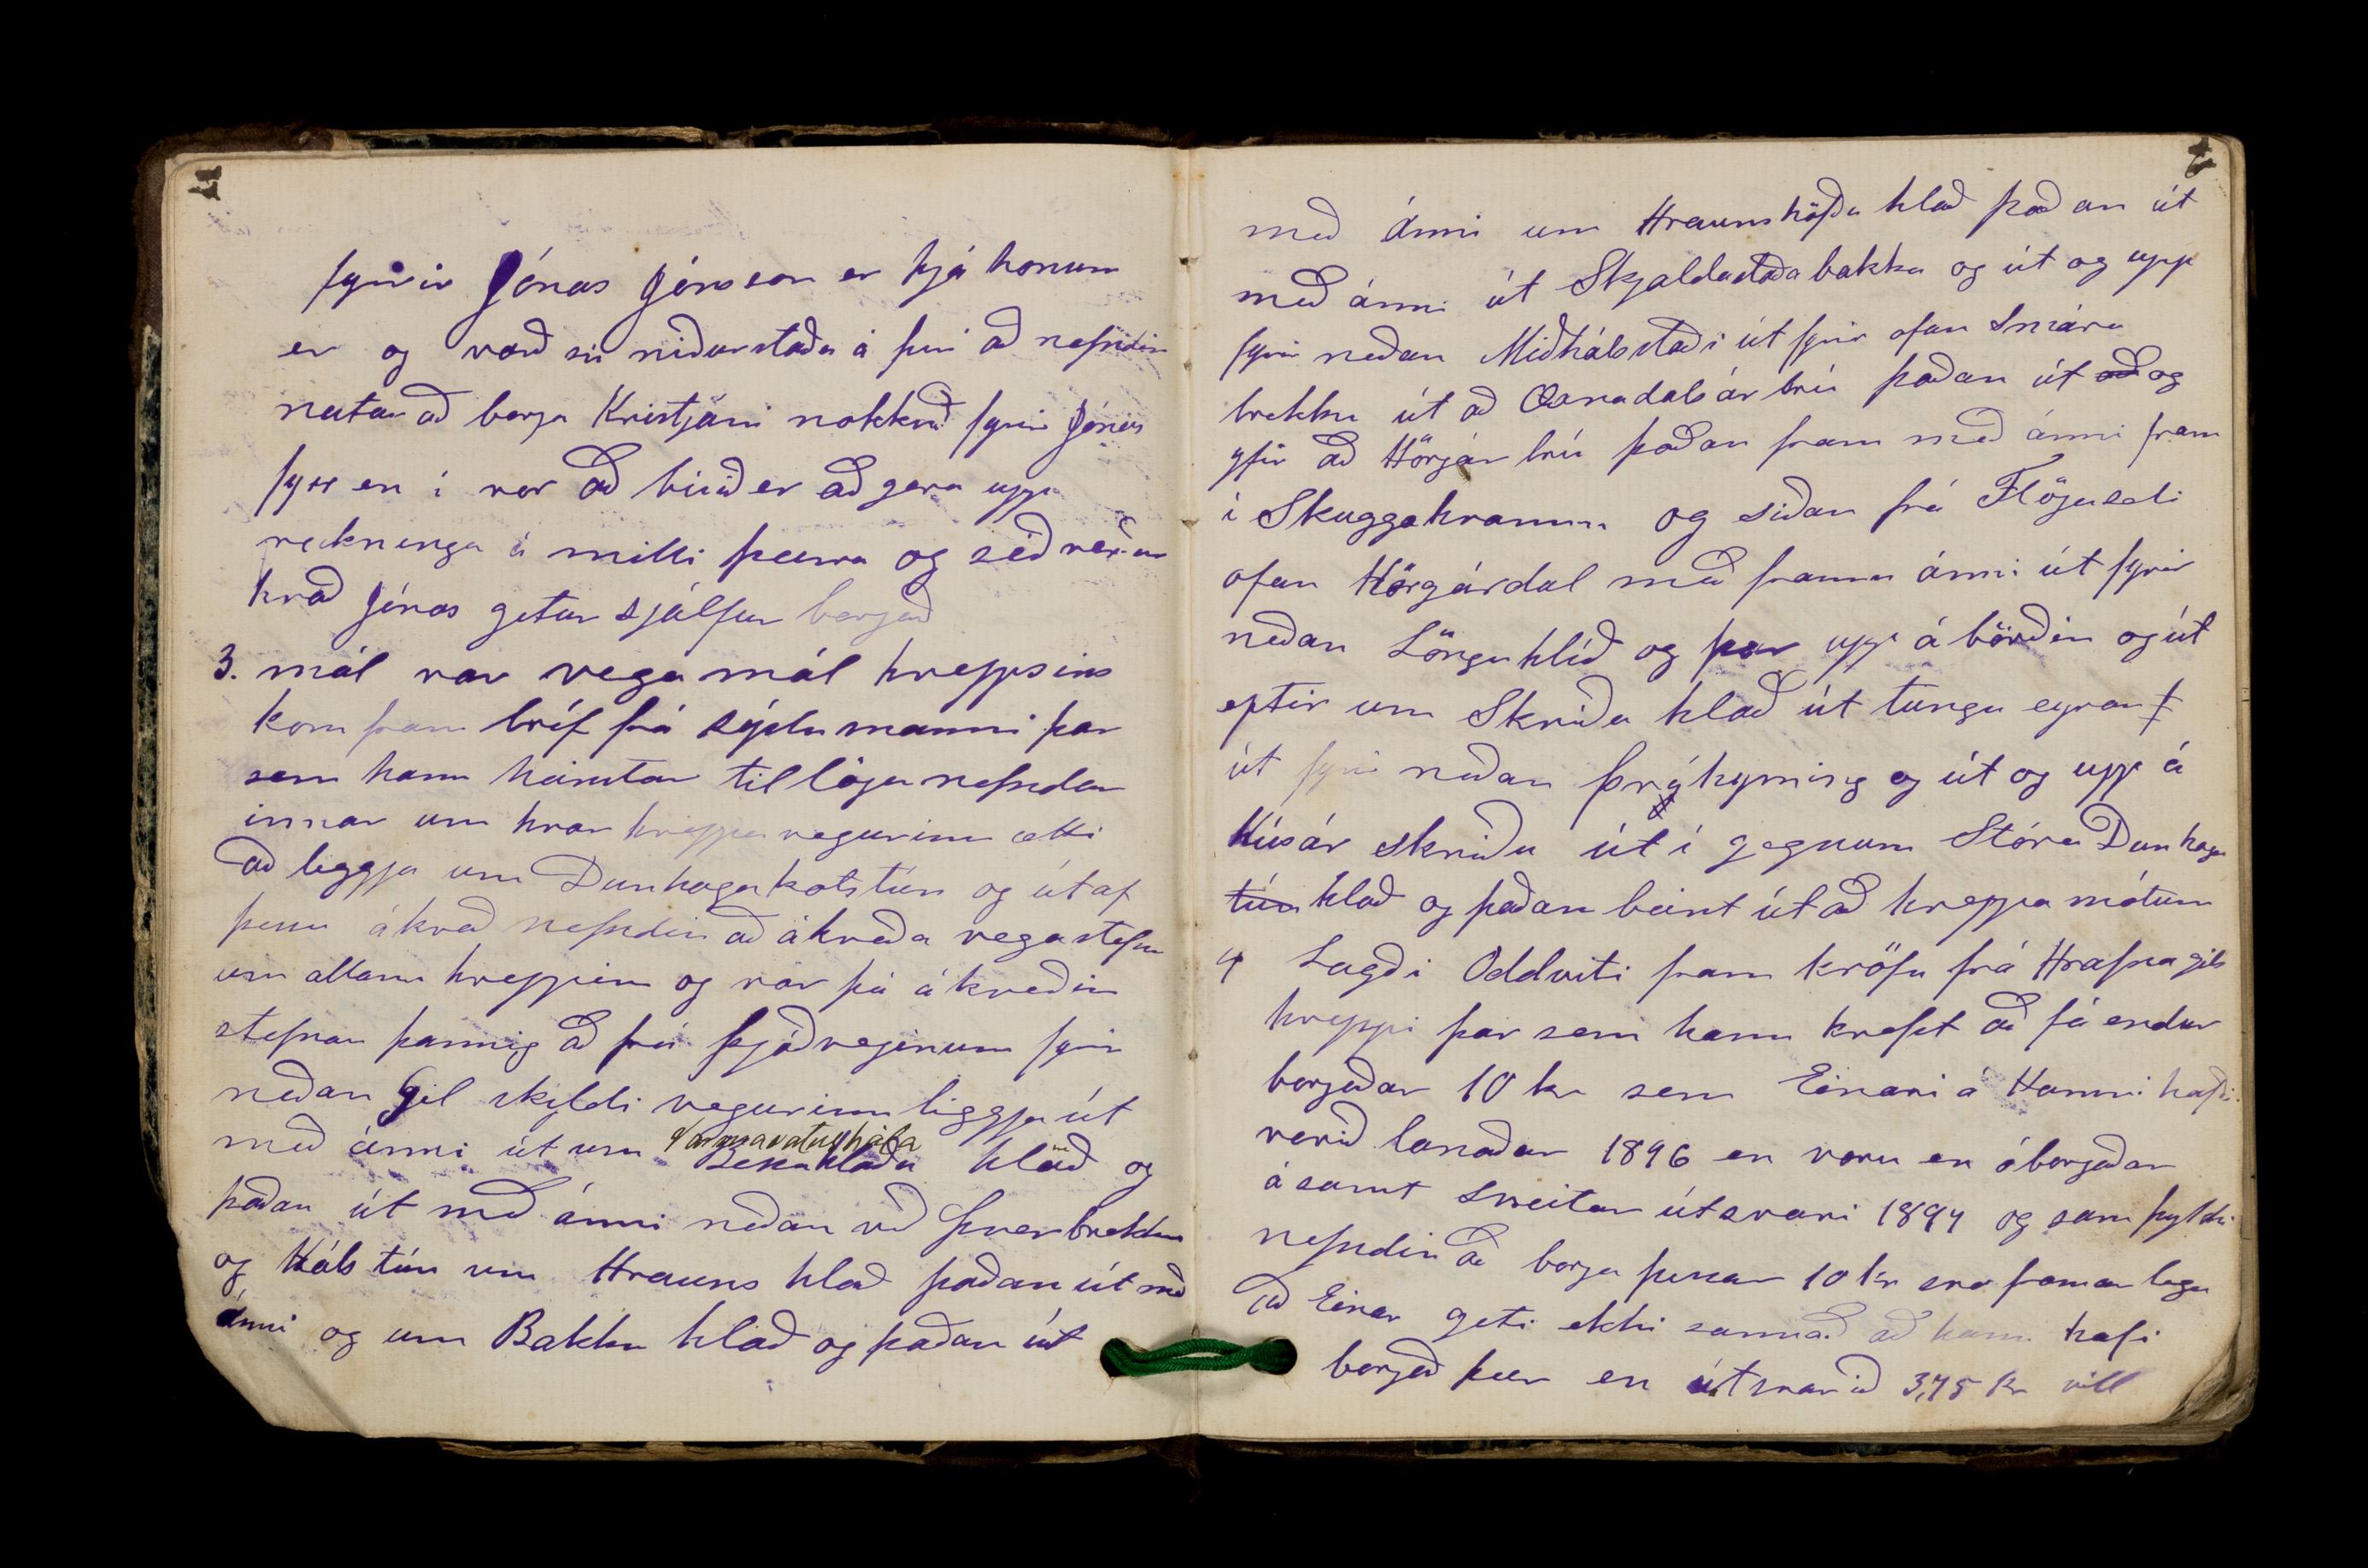 fyrir Jónas Jónsson er hjá honum
er og varð sú niðurstaða á því að nefndin
neitar að borga Kristjáni nokkuð fyrir Jónas
fyrr en í vor að búið er að gera upp
reikninga á milli þeirra og séð verður
hvað Jónas getur sjálfur borgað
3. mál var vega mál hreppsins
kom fram bréf frá sýslumanni þar
sem hann heimtar tillögu nefndar
innar um hvar hreppavegurinn ætti
að leggja um Dunhagakotstún og útaf
þessu ákvað nefndin að ákveða vegastefnu
um allann hreppinn og var þá ákveðin
stefnan þannig að frá þjóðveginum fyrir
neðan Gil skildi vegurinn liggja út
með ánni út um Bessahlaða hlað og
Varmavatnshóla
þaðan út með ánni neðan við Þverbrekku
og Háls tún um Hrauns hlað þaðan út með
ánni og um Bakka hlað og þaðan út
með ánni um Hraunshöfða hlað þaðan út
með ánni út Skjaldastaðabakka og út og upp
fyrir neðan Miðhálsstaði út fyrir ofan Smára
brekku út að Öxnadalsárbrú þaðan út að og
yfir að Hörgárbrú þaðan fram með ánni fram
í Skuggahvamm og síðan frá Flöguseli
ofan Hörgárdal með framm ánni út fyrir
neðan Lönguhlíð og þar upp á börðin og út
eptir um Skriðu hlað út tungu eyrar
út fyrir neðan Þríhyrning og út og upp á
Húsár skriðu út í gegnum Stóra Dunhaga
tún hlað og þaðan beint út að hreppa mótum
4 Lagði Oddviti fram kröfu frá Hrafnagils
hreppi þar sem hann krefst að fá endur
borgaðar 10 kr sem Einari á Hamri hafði
verið lanaðar 1896 en voru en óborgaðar
ásamt sveitar útsvari 1897 og samþykti
nefndin að borga þessar 10 kr svo framar lega
að Einar geti ekki sannað að hann hafi
borgað þær en útsvarið 3,75 kr vill